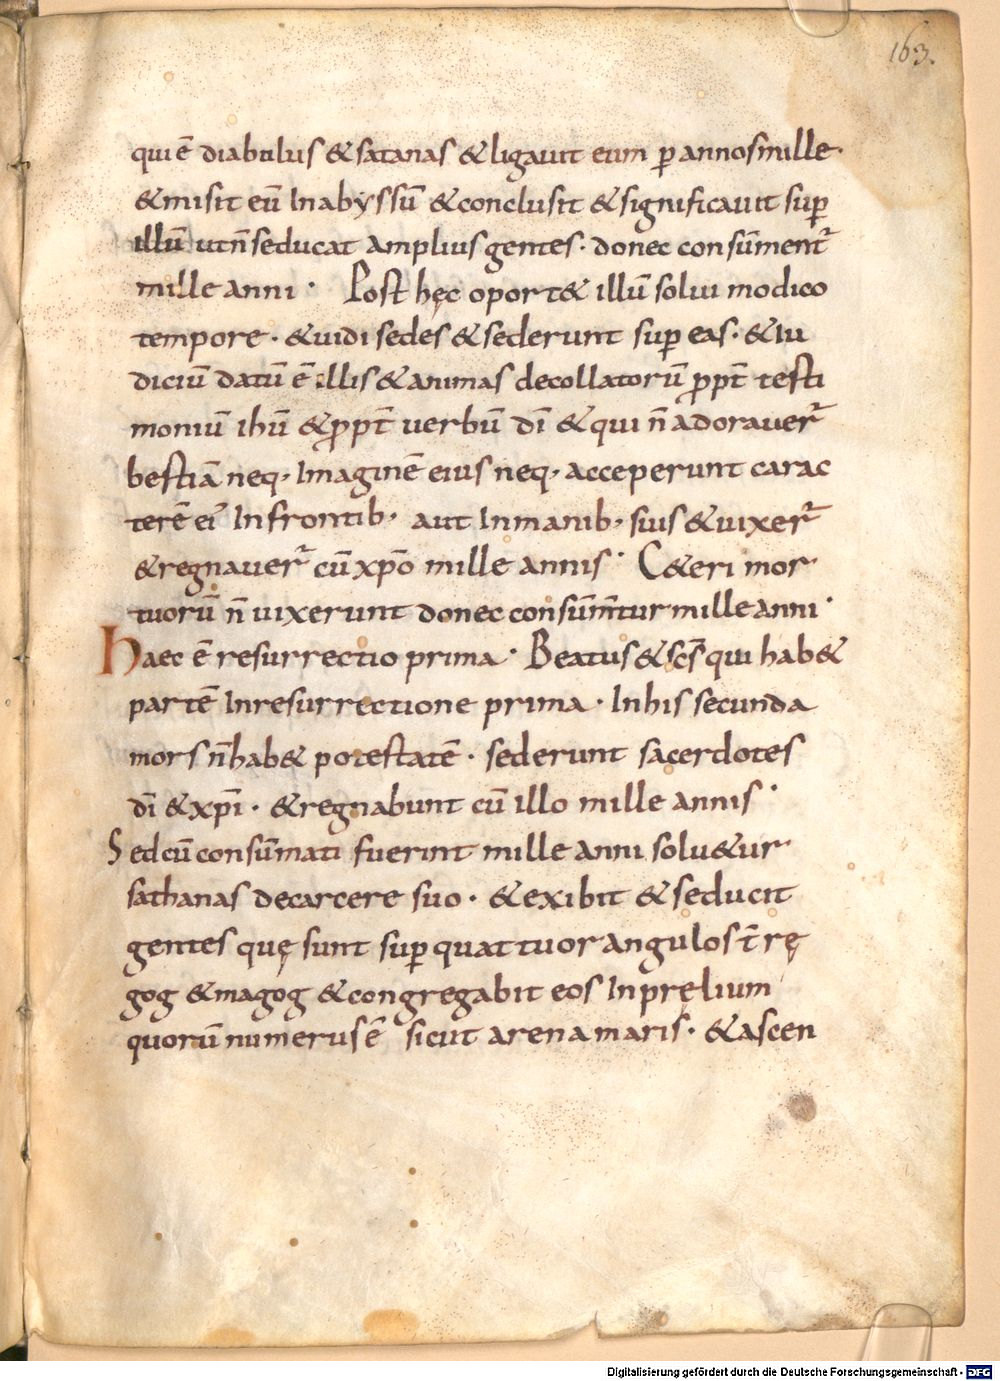 163.
qui ē diabulus & satanas & ligauit eum p̱ annos mille·
& misit eū In abyssū & conclusit & significauit sup̱
illū ut n̄ seducat amplius gentes· donec consūment᷑
mille anni · Post hęc oport& illū solui modico
tempore · & uidi sedes & sederunt sup̱ eas· & Iu
diciū datū ē illis & animas decollatorū ꝓpt̄ testi
moniū ihū & ꝓpt̄ uerbū dī & qui n̄ adorauer᷑
bestiā neq· Imaginē eius neq· acceperunt carac
terē ei᷑ In frontib· aut In manib· sius & uixer᷑
& regnauer᷑ cū xp̄o mille annis · C&eri mor
tuorū n̄ uixerunt donec consūm̄tur mille anni ·
Haec ē resurrectio prima · Beatus & sc̄s qui hab&
partē In resurrectione prima · In his secunda
mors n̄ hab& potestatē · sederunt sacerdotes
dī & xp̄i · & regnabunt cū illo mille annis ·
Sed cū consūmati fuerint mille anni solu&ur
sathanas de carcere suo · & exibit & seducit
gentes quę sunt sup̱ quattuor angulos t̄rę
gog & magog & congregabit eos In pręlium
quorū numerus ē sicut arena maris · & ascen
Digitalisierung gefördert durch die Deutsche Forschungsgemeinschaft - DFG